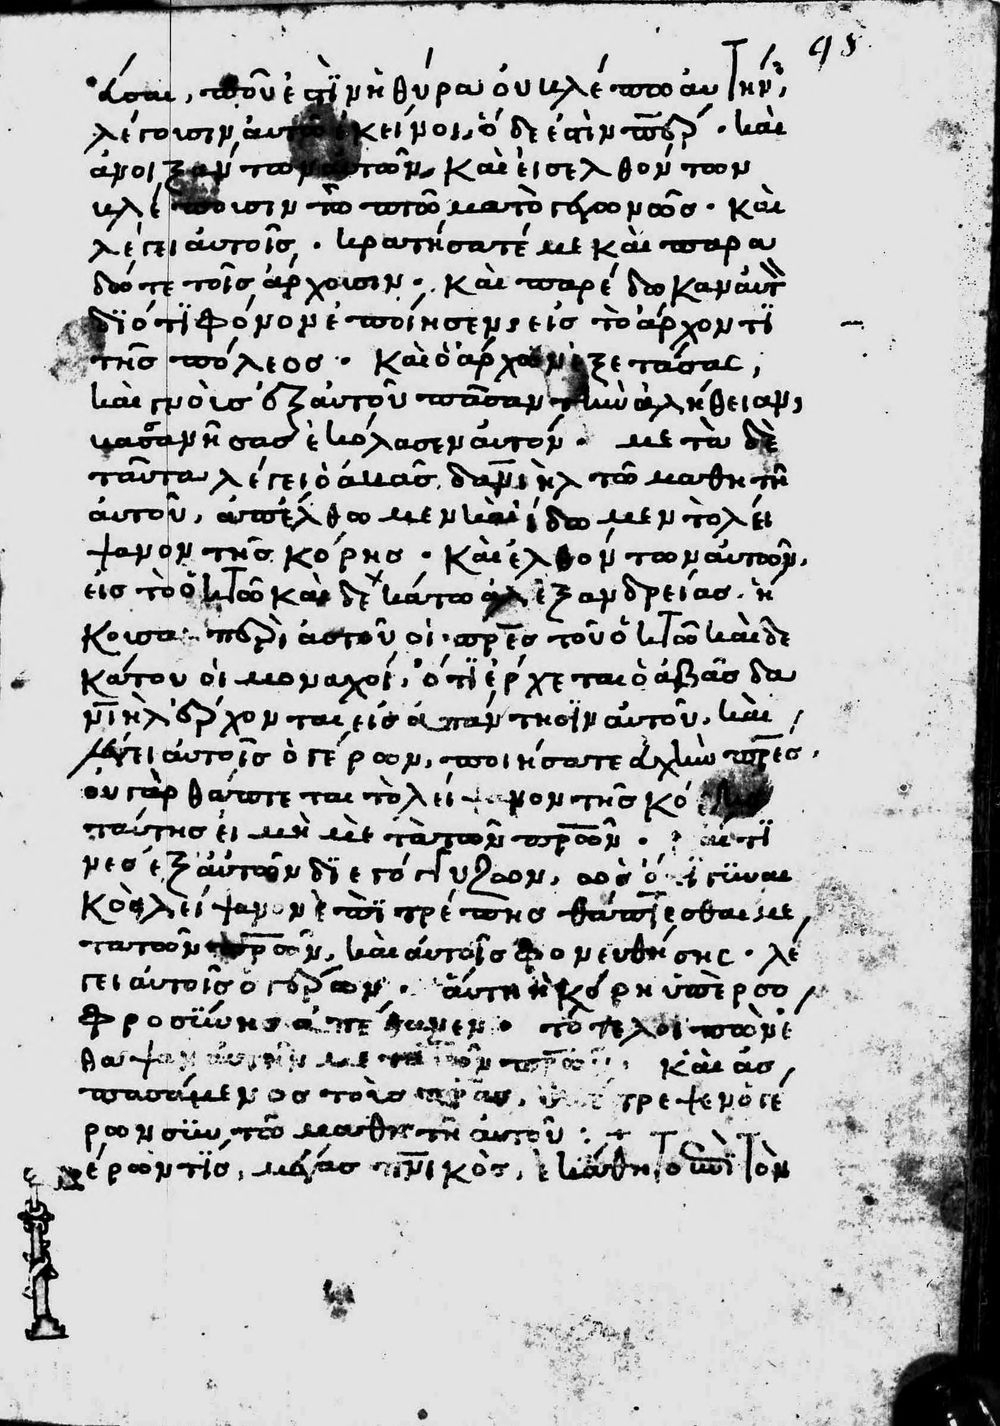 98
άσαι, ποῦ ἐστϊν ἡ θύρα οὐ βλέπω αὐτήν,
λέγουσιν αὐτῶ ἐκείνοι, ὁ δε εἶπεν καὶ
ἀνοιξάντων αὐτῶν, Καὶ εἰσελθόντων
βλέπουσιν τὸ πτῶμα τὸ Καὶ
λέγει αὐτοῖς. κρατήσατέ με καὶ παρα
δώτε τοῖς ἀρχουσιν. Καὶ παρέδωκαν αὐτ
δϊότϊ φόνον ἐποίησεν, εἰς τὸ ἀρχοντϊ
τῆς πόλεος. Καὶ ὁ ἀρχων ἐξετάσας,
καὶ γνοὺς ἐξ αὐτοῦ πᾶσαν τὴν ἀλήθειαν,
ἐκόλασεν αὐτόν. μετὰ δὲ
ταῦτα λέγει ὁ ἀμᾶς δανϊὴλ τῶ μαθητῆ
αὐτοῦ, ἀπέλθωμεν καὶ ίδωμεν τὸ λεί
ψανον τῆς κόρης. Καὶ ἐλθόντων αὐτῶν,
εἰς τὸ ὀκτωκαὶδεκάτω ἀλεξανδρείας. ἠ
κουσαν περὶ αὐτοῦ οἱ πρες τοῦ ὀκτωκαιδε
κάτου οἱ μοναχοί, ὁτϊ ἐρχεται ὁ ἀβᾶς δα
νϊὴλ ἐρχονται εἰς ἀπάντησϊν αὐτοῦ, καὶ
λέγει αὐτοῖς ὁ γέρων, ποιήσατε εὐχὴν πρες,
οὐ γὰρ θάπτεται τὸ λείψανον τῆς κόρης
ταύτης εἰ μὴ μὲ τὰ τῶν πρων.
νες ἐξ αὐτῶν δϊεγόγγυζον, ὡς ότϊ γϋναι
κὸς λείψανον ἐπϊτρέπης θάπτεσθαι με
τα τῶν πρων, καὶ αὐτοῖς φονευθήσης. λέ
γει αὐτοῖς ὁ γέρων. αὐτη ἡ κόρη ὑπὲρ σο
φροσϋνης ἀπέθανεν. τὸ τέλοι πὸν ἐ
θαψαν αὐτὴν μετὰ τῶν πρων. Καὶ ἀσ
πασάμενος τοὺς πρας, ὑπέστρεψεν ὁ γέ
ρων σὺν τῶ μαθητῆ αὐτοῦ :+
έρωντϊς, μέγας ἐκάθητο ἐπὶ τὸν